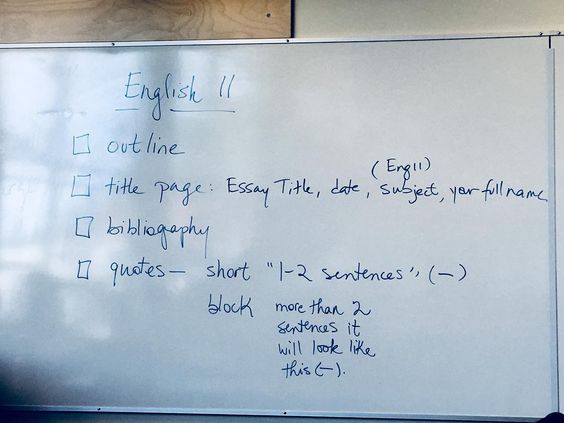 English 11
outline
(Eng 11)
title page: Essay Title, date, subject, your full name
bibliography
quotes — short "1-2 sentences" (—)
block more than 2
sentences it
will look like
this (—).